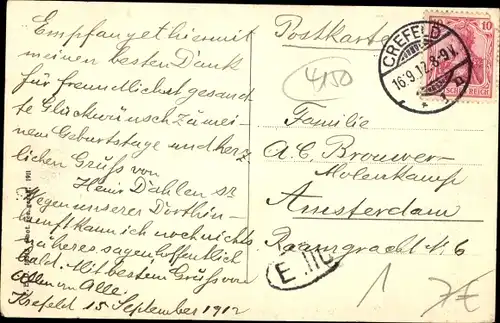 Empfanget hiermit
meinen besten Dank
für freundlichst gesand-
te Glückwünsch zu mei-
nem Geburtstage und herz-
lichen Gruß von
Heinr Dahlen sr
Wegen unserer Dorthin-
kunft kann ich noch nichts
näheres sagen hoffentlich
bald. Mit bestem Gruß von
Allen an Alle.
Krefeld 15 September 1912
Postkarte
CREFELD
16.9.12.8-9V.
10
4150
Familie
A.C. Brouwer-
Molenkamp
Amsterdam
Raamgracht N. 6
E.110
1
7€
1911